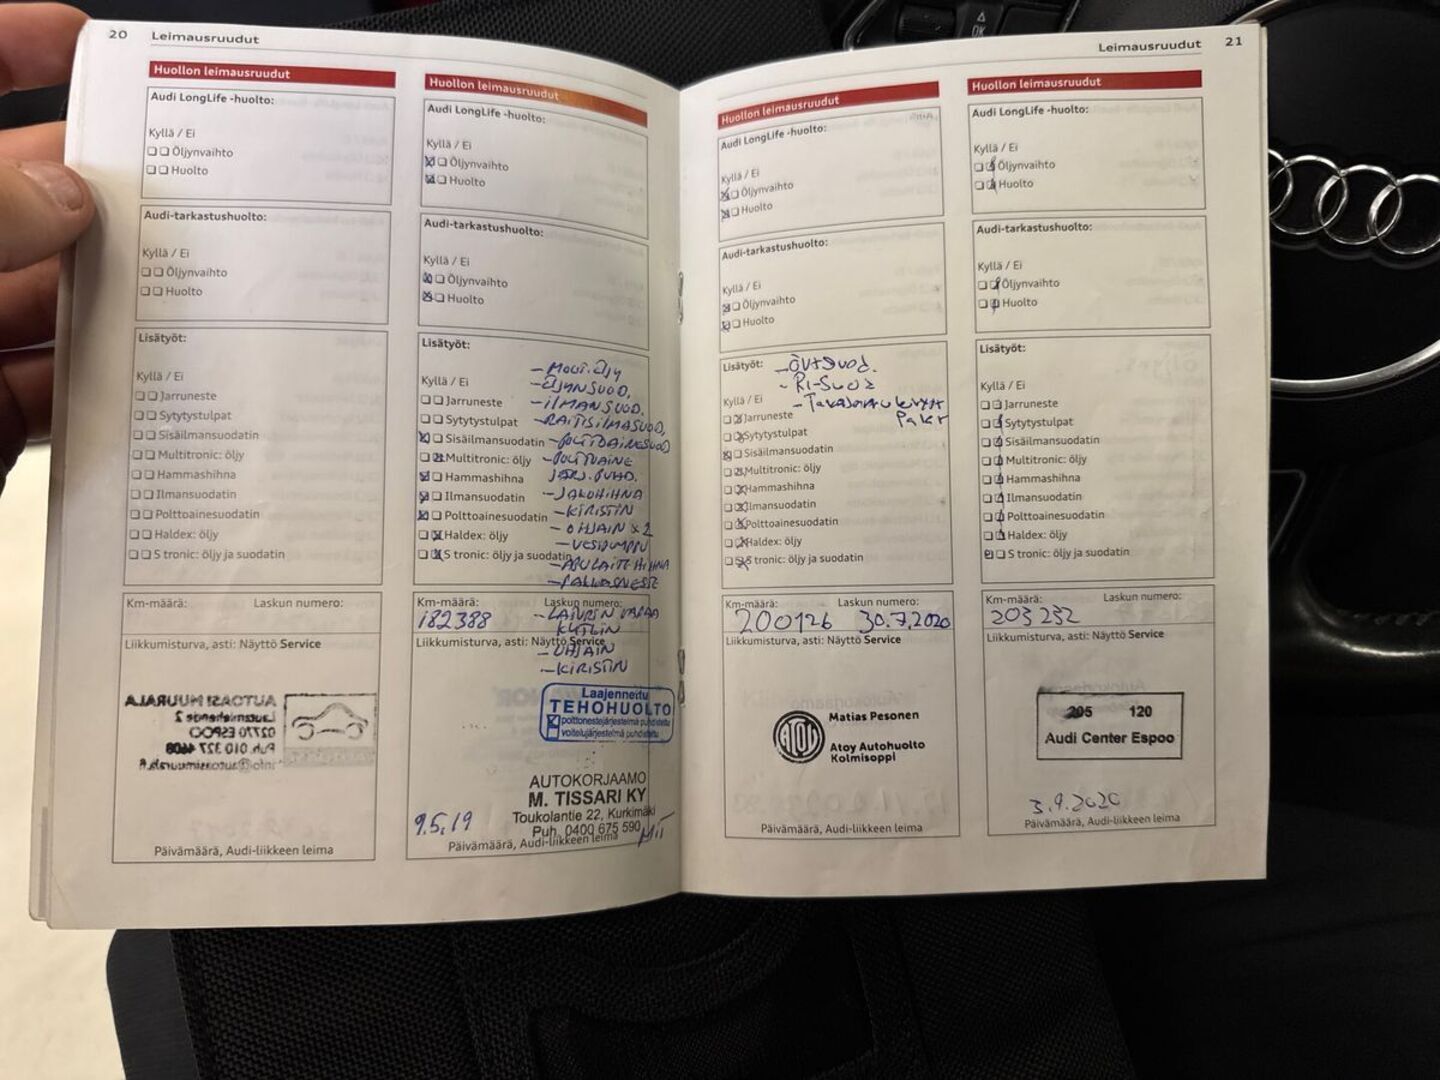 20 Leimausruudut
Huollon leimausruudut
Audi LongLife -huolto:
Kyllä / Ei
Öljynvaihto
Huolto
Audi-tarkastushuolto:
Kyllä / Ei
Öljynvaihto
Huolto
Lisätyöt:
Kyllä / Ei
Jarruneste
Sytytystulpat
Sisäilmansuodatin
Multitronic: öljy
Hammashihna
Ilmansuodatin
Polttoainesuodatin
Haldex: öljy
S tronic: öljy ja suodatin
Km-määrä: Laskun numero:
Liikkumisturva, asti: Näyttö Service
AUTOASI MUURALA
02770 ESPOO
Puh. 010 327 4608
Päivämäärä, Audi-liikkeen leima
Huollon leimausruudut
Audi LongLife -huolto:
Kyllä / Ei
Öljynvaihto
Huolto
Audi-tarkastushuolto:
Kyllä / Ei
Öljynvaihto
Huolto
Lisätyöt:
Kyllä / Ei
Jarruneste
Sytytystulpat
Sisäilmansuodatin
Multitronic: öljy
Hammashihna
Ilmansuodatin
Polttoainesuodatin
Haldex: öljy
S tronic: öljy ja suodatin
- ÖLJYNSUOD.
- ILMANSUOD.
- RAITISILMASUOD.
- POLTTOAINESUOD
- POLTTOAINE
JÄRJ. PUHD.
- JAKOHIHNA
- KIRISTIN
- OHJAIN x 2
- VESIPUMPPU
- APULAITEHIHNA
- LATURIN VAPAA
KYTKIN
- OHJAIN
- KIRISTIN
Km-määrä: Laskun numero:
182388
Liikkumisturva, asti: Näyttö Service
Laajennettu
TEHOHUOLTO
polttonestejärjestelmä puhdistettu
voitelujärjestelmä puhdistettu
AUTOKORJAAMO
M. TISSARI KY
Toukolantie 22, Kurkimäki
Puh. 0400 675 590
9.5.19
Päivämäärä, Audi-liikkeen leima
Leimausruudut 21
Huollon leimausruudut
Audi LongLife -huolto:
Kyllä / Ei
Öljynvaihto
Huolto
Audi-tarkastushuolto:
Kyllä / Ei
Öljynvaihto
Huolto
Lisätyöt:
Kyllä / Ei
Jarruneste
Sytytystulpat
Sisäilmansuodatin
Multitronic: öljy
Hammashihna
Ilmansuodatin
Polttoainesuodatin
Haldex: öljy
S tronic: öljy ja suodatin
Km-määrä: Laskun numero:
200126 30.7.2020
Liikkumisturva, asti: Näyttö Service
Matias Pesonen
Atoy Autohuolto
Kolmisoppi
Päivämäärä, Audi-liikkeen leima
Huollon leimausruudut
Audi LongLife -huolto:
Kyllä / Ei
Öljynvaihto
Huolto
Audi-tarkastushuolto:
Kyllä / Ei
Öljynvaihto
Huolto
Lisätyöt:
Kyllä / Ei
Jarruneste
Sytytystulpat
Sisäilmansuodatin
Multitronic: öljy
Hammashihna
Ilmansuodatin
Polttoainesuodatin
Haldex: öljy
S tronic: öljy ja suodatin
Km-määrä: Laskun numero:
203 232
Liikkumisturva, asti: Näyttö Service
205 120
Audi Center Espoo
3.9.2020
Päivämäärä, Audi-liikkeen leima
OK